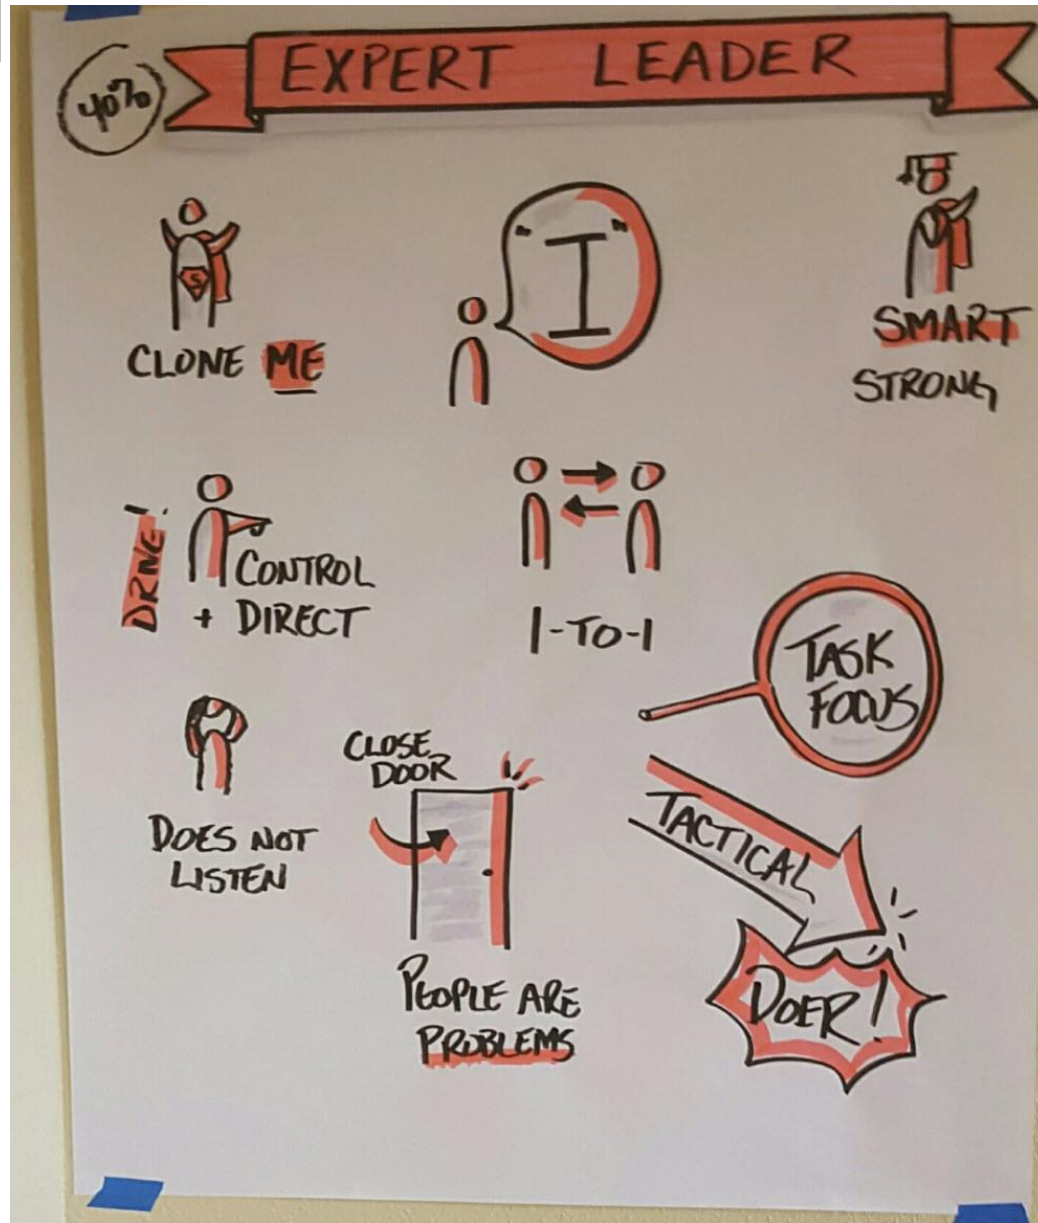 40%
EXPERT LEADER
S
CLONE ME
"I"
SMART
STRONG
DRIVE!
CONTROL
+ DIRECT
1-TO-1
TASK
FOCUS
DOES NOT
LISTEN
CLOSE
DOOR
PEOPLE ARE
PROBLEMS
TACTICAL
DOER!